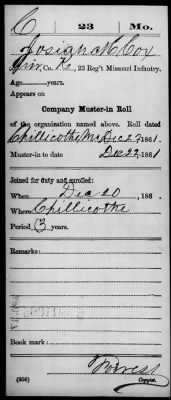 C 23 Mo.
Josiah H Cox
Priv, Co. K, 23 Reg't Missouri Infantry.
Age years.
Appears on
Company Muster-in Roll
of the organization named above. Roll dated
Chillicothe Mo Dec 22, 1861.
Muster-in to date Dec 22, 1861
Joined for duty and enrolled:
When Dec 20, 186 .
Where Chillicothe
Period 3 years.
Remarks:
Book mark:
(356) Copyist.